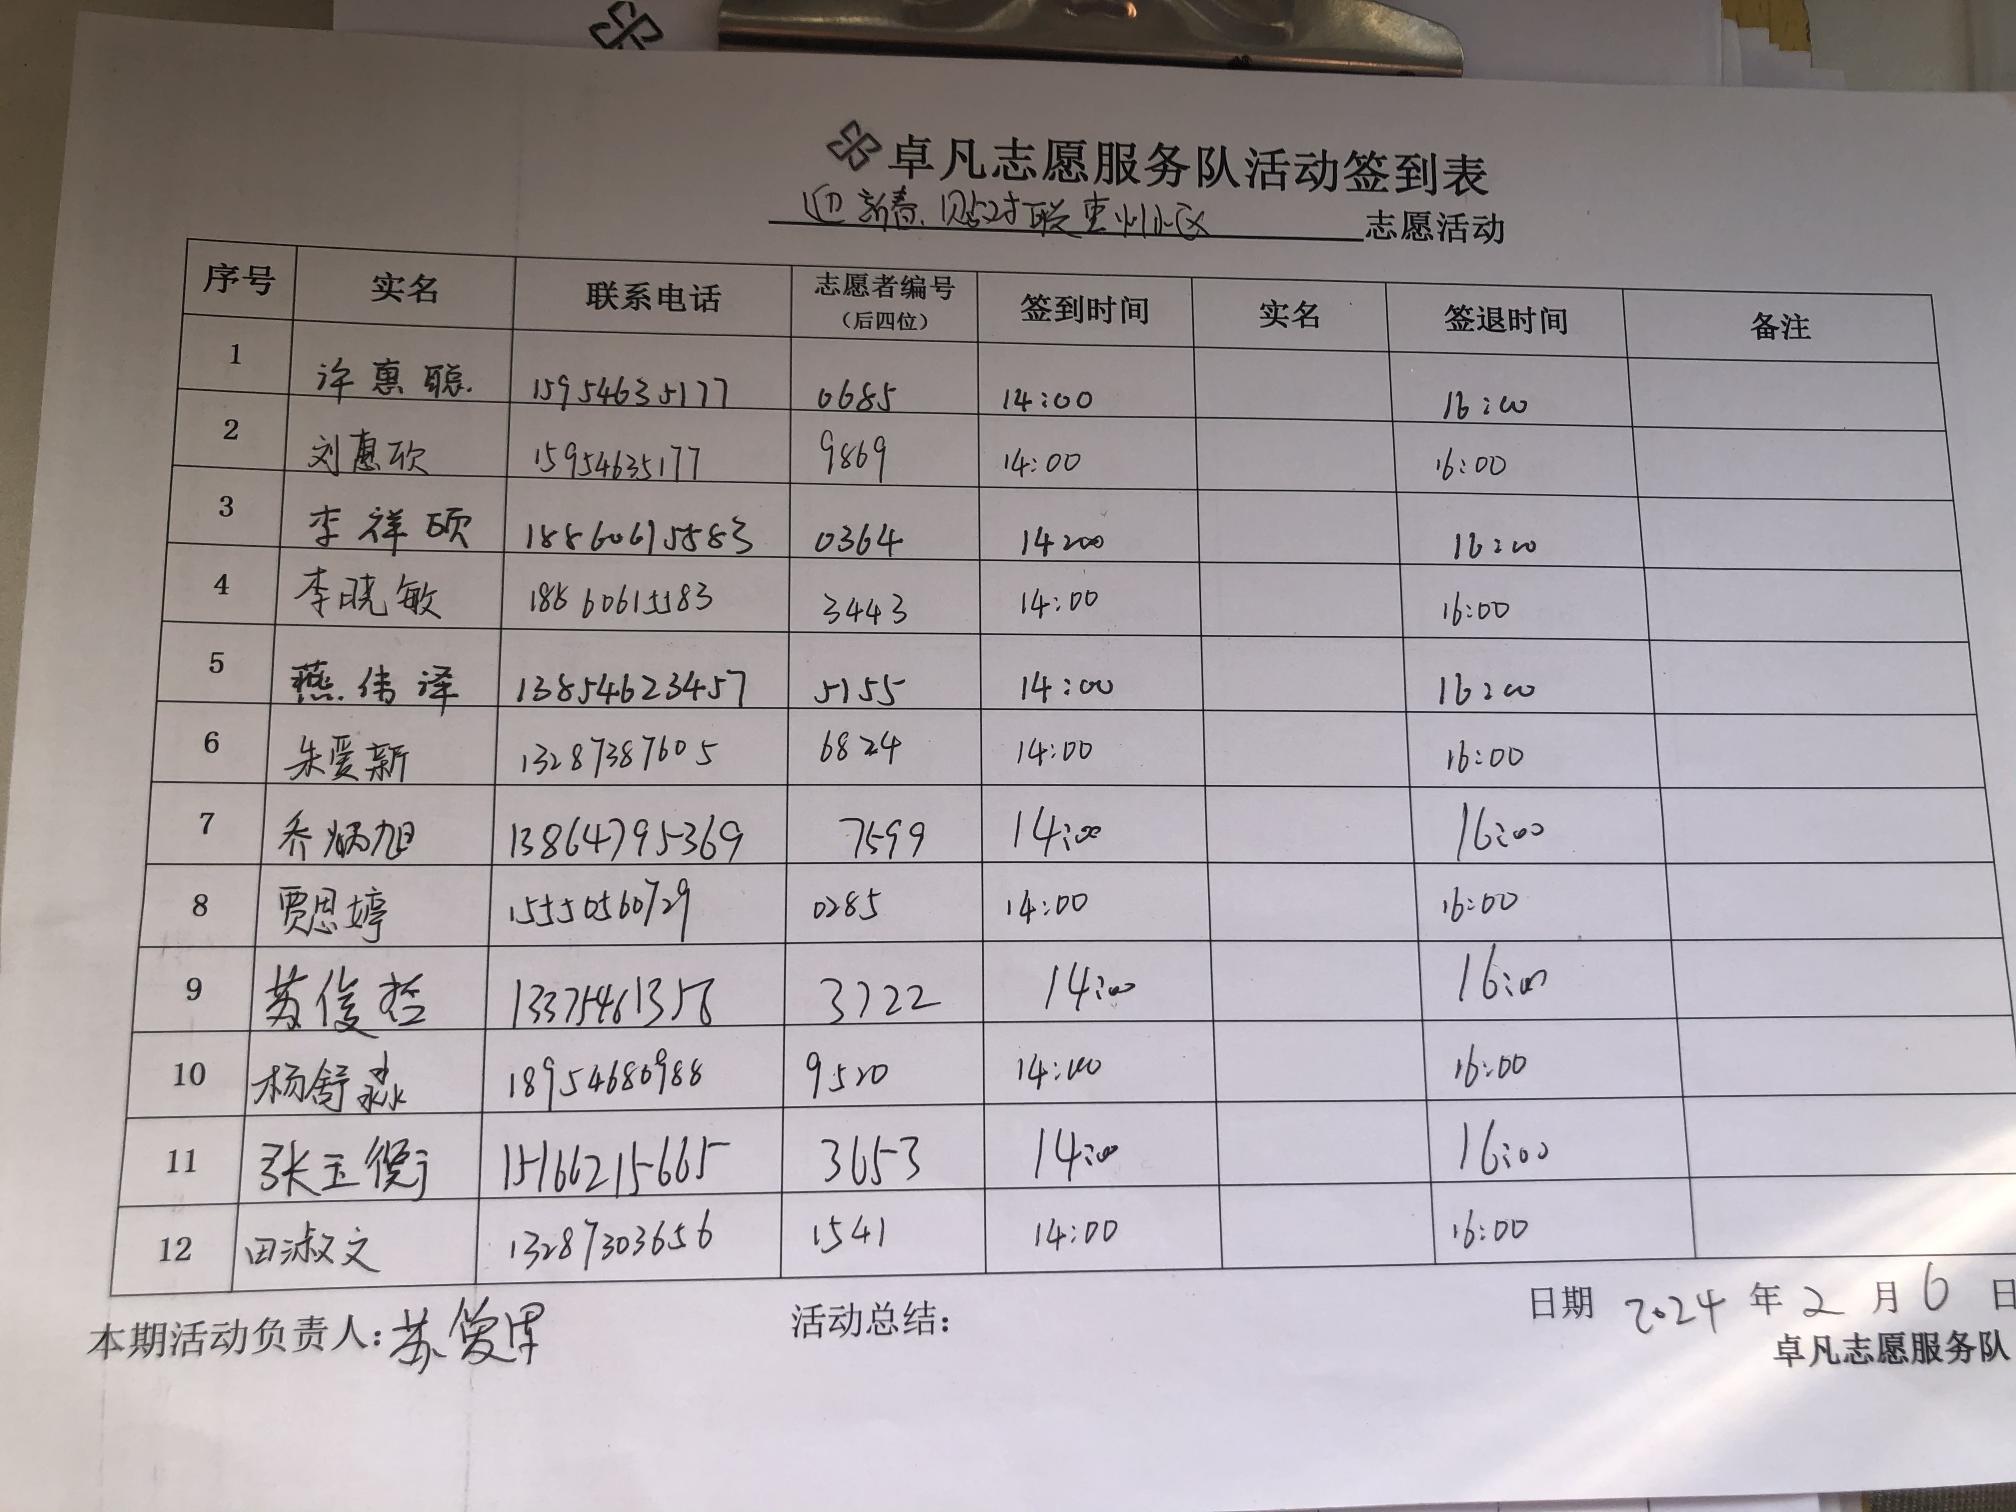 卓凡志愿服务队活动签到表
迎新春、贴对联惠州小区 志愿活动
序号 实名 联系电话 志愿者编号（后四位） 签到时间 实名 签退时间 备注
1 许惠聪 15954635177 0685 14:00 16:00
2 刘惠欣 15954635177 9869 14:00 16:00
3 李祥硕 18860615583 0364 14:00 16:00
4 李晓敏 3443 14:00 16:00
5 燕伟泽 13854623457 5155 14:00 16:00
6 朱爱新 13287387605 6824 14:00 16:00
7 乔炳旭 13864795369 7599 14:00 16:00
8 贾恩婷 15550560729 0285 14:00 16:00
9 苏俊哲 13375461358 3722 14:00 16:00
10 杨舒淼 18954680988 9520 14:00 16:00
11 张玉 15166215665 3653 14:00 16:00
12 田淑文 13287303656 1541 14:00 16:00
本期活动负责人: 苏 活动总结: 日期 2024 年 2 月 6 日
卓凡志愿服务队